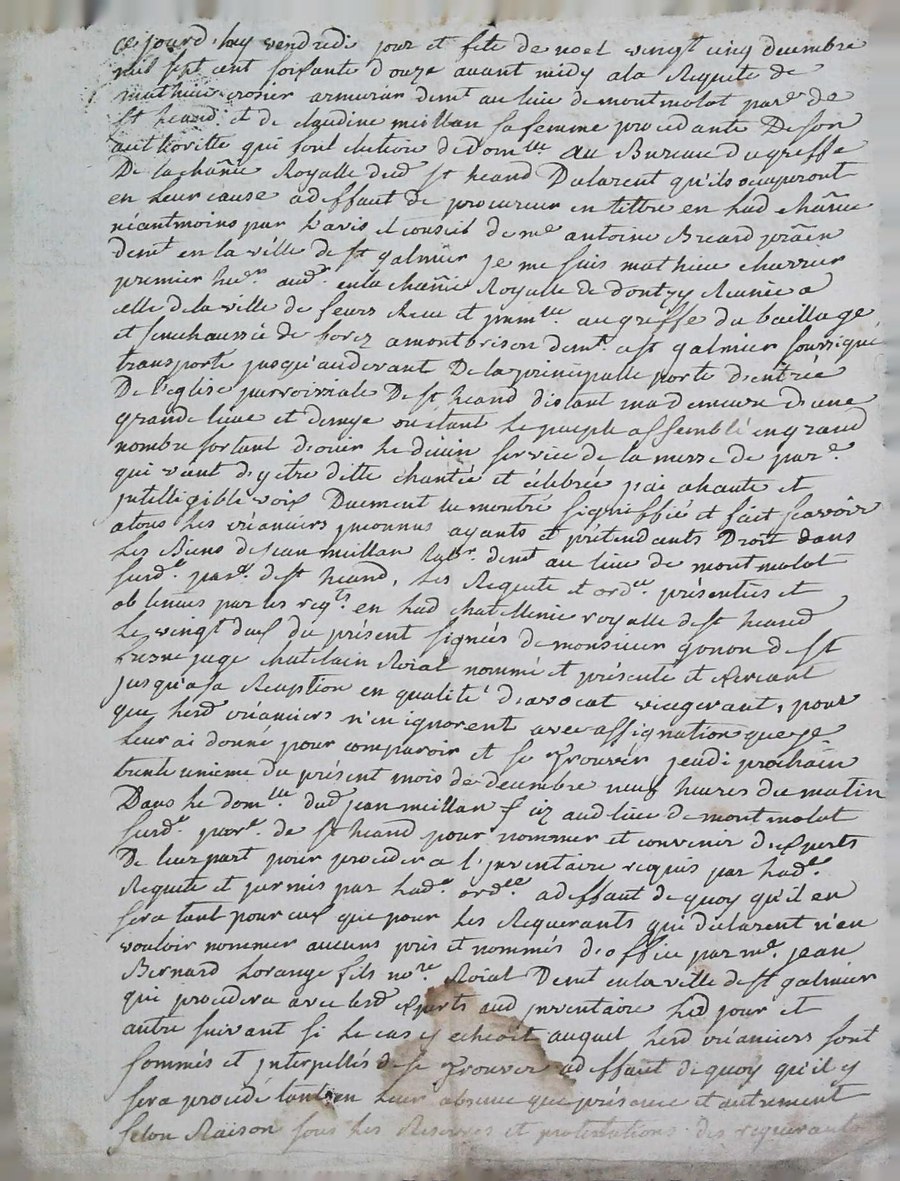 ce jourd'huy vendredi jour et fete de noel vingt cinq decembre
mil sept cent soixante d'ouze avant midy a la Requete de
mathieu crosier armurier demt au lieu de montmolot parse de
st heand et de claudine meillan sa femme procedante De son
authoritte qui font election de domlle au Bureau du greffe
De la chãnie Royalle dud st heand Declarent qu'ils ocuperont
en leur cause a deffaut de procureur en tittre en lad chãnie
néantmoins par l'avis et conseil de me antoine Breard prãien
demt en la ville de st galmier je me suis mathieu charrier
premier her audr en la chãnie Royalle de dontzy Reunie a
celle de la ville de feurs Receu et jmmlle au greffe du baillage
et senechaussée de forez a montbrison demt a st galmier soussigné
transporté jusqu'au devant De la principalle porte d'entrée
De l'eglise parroissiale De st heand distant ma demeure d'une
grande lieue et demye ou étant le peuple assemblé en grand
nombre sortant d'ouir le divin service de la messe de parse
qui vient d'y etre ditte chantée et célébrée j'ai a haute et
jntelligible voix Duement lu montré signiffié et fait scavoir
a tous les créanciers jnconnus ayants et prétendants Droit dans
les Biens de jean meillan labr demt au lieu de montmolot
surde parse de st heand, les Requete et ordce présentées et
obtenues par les reqts en lad chatellenie royalle de st heand
le vingt deux du présent signées de monsieur gonon de st
fresne juge chatelain Roial nommé et présenté et exercant
jusqu'a sa Reception en qualité d'avocat viagerant, pour
que lesd créanciers n'en ignorent avec assignation que je
leur ai donné pour comparoir et se trouver jeudi prochain
trente unieme du présent mois de decembre neuf heures du matin
Dans le domlle dud jean meillan siz aud lieu de montmolot
surde parse de st heand pour nommer et convenir d'experts
De leur part pour proceder a l'jnventaire requis par lade
Requete et permis par lade ordce a deffaut de quoy qu'il en
sera tant pour eux que pour les Requerants qui declarent n'en
vouloir nommer aucuns pris et nommés d'office par me jean
Bernard Lorange fils nore Roial Demt en la ville de st galmier
qui procedera avec lesd experts aud jnventaire led jour et
autre suivant si le cas y echeoit auquel lesd créanciers sont
sommés et jnterpellés de se trouver a deffaut de quoy qu'il y
sera procédé tant en leur absence que présance et autrement
selon Raison sous les Reserves et protestations des requerants